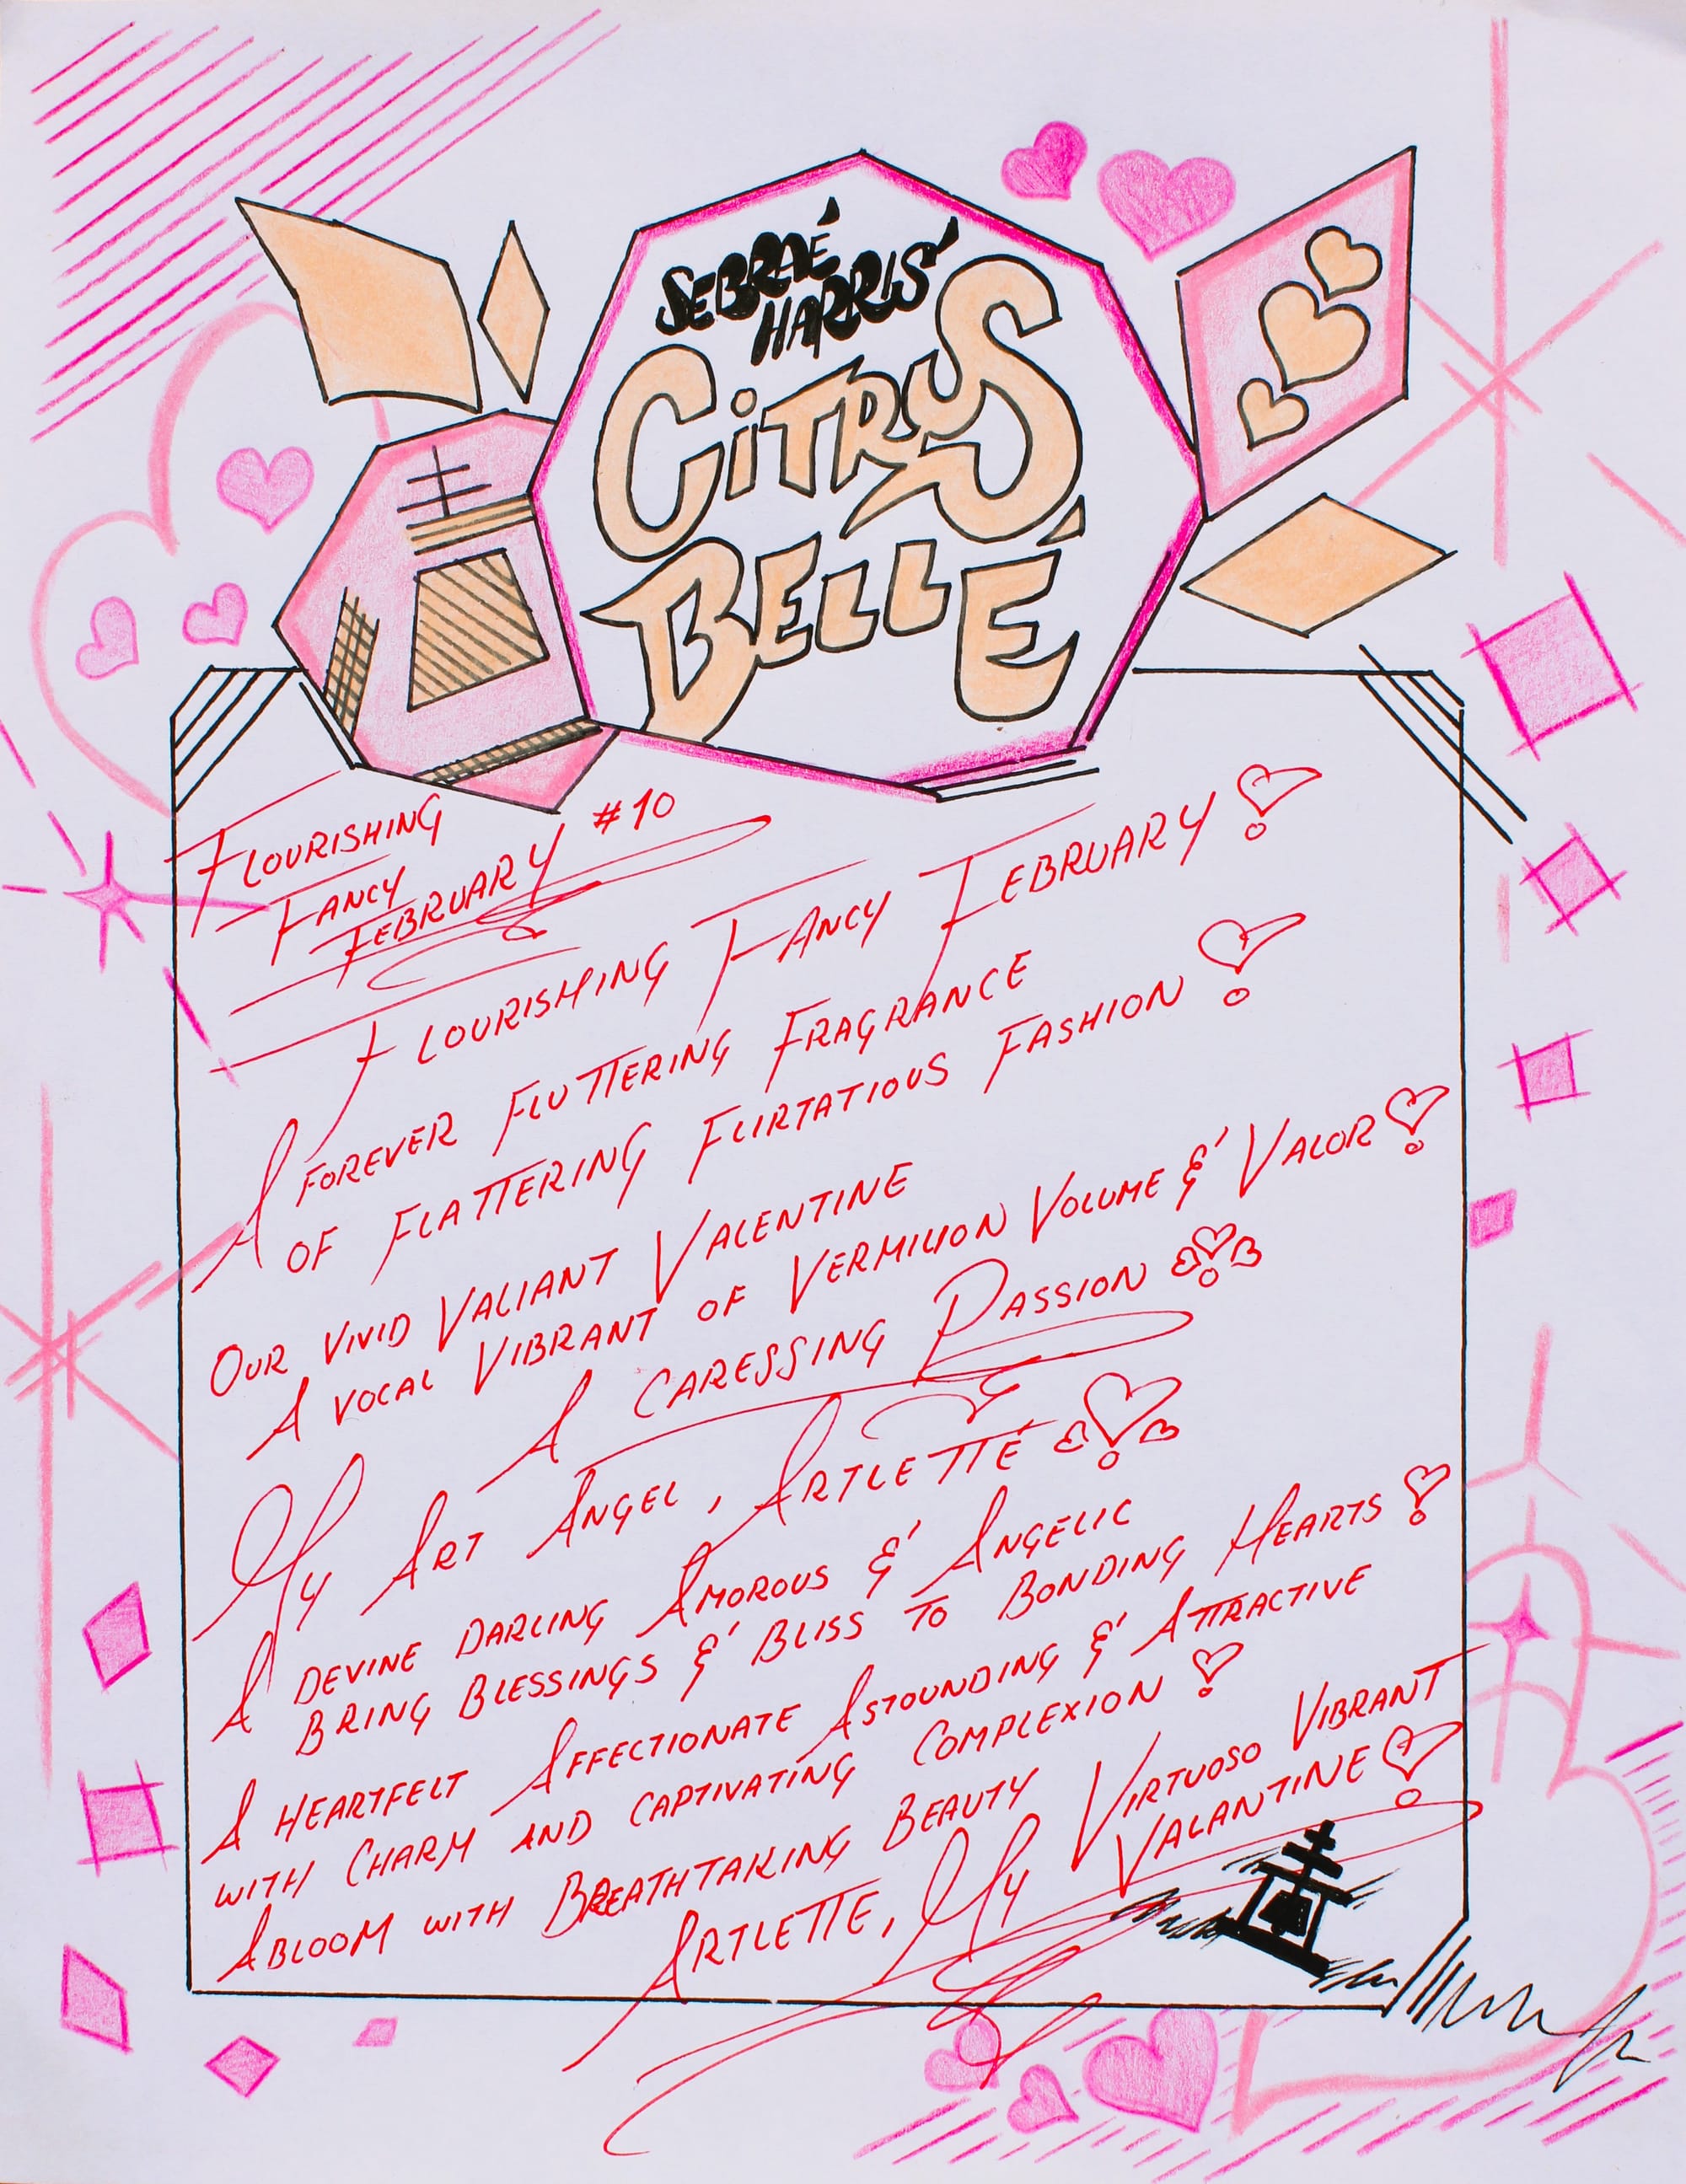 SEBRAÉ
HARRIS'
CiTRUS
BELLÉ
FLOURISHING
FANCY
FEBRUARY #10
FLOURISHING FANCY FEBRUARY
A FOREVER FLUTTERING FRAGRANCE
OF FLATTERING FLIRTATIOUS FASHION
OUR VIVID VALIANT VALENTINE
A VOCAL VIBRANT OF VERMILION VOLUME & VALOR
A CARESSING PASSION
MY ART ANGEL, ARTLETTÉ
A DEVINE DARLING AMOROUS & ANGELIC
BRING BLESSINGS & BLISS TO BONDING HEARTS
A HEARTFELT AFFECTIONATE ASTOUNDING & ATTRACTIVE
WITH CHARM AND CAPTIVATING COMPLEXION
ABLOOM WITH BREATHTAKING BEAUTY
ARTLETTE, MY VIRTUOSO VIBRANT
VALANTINE